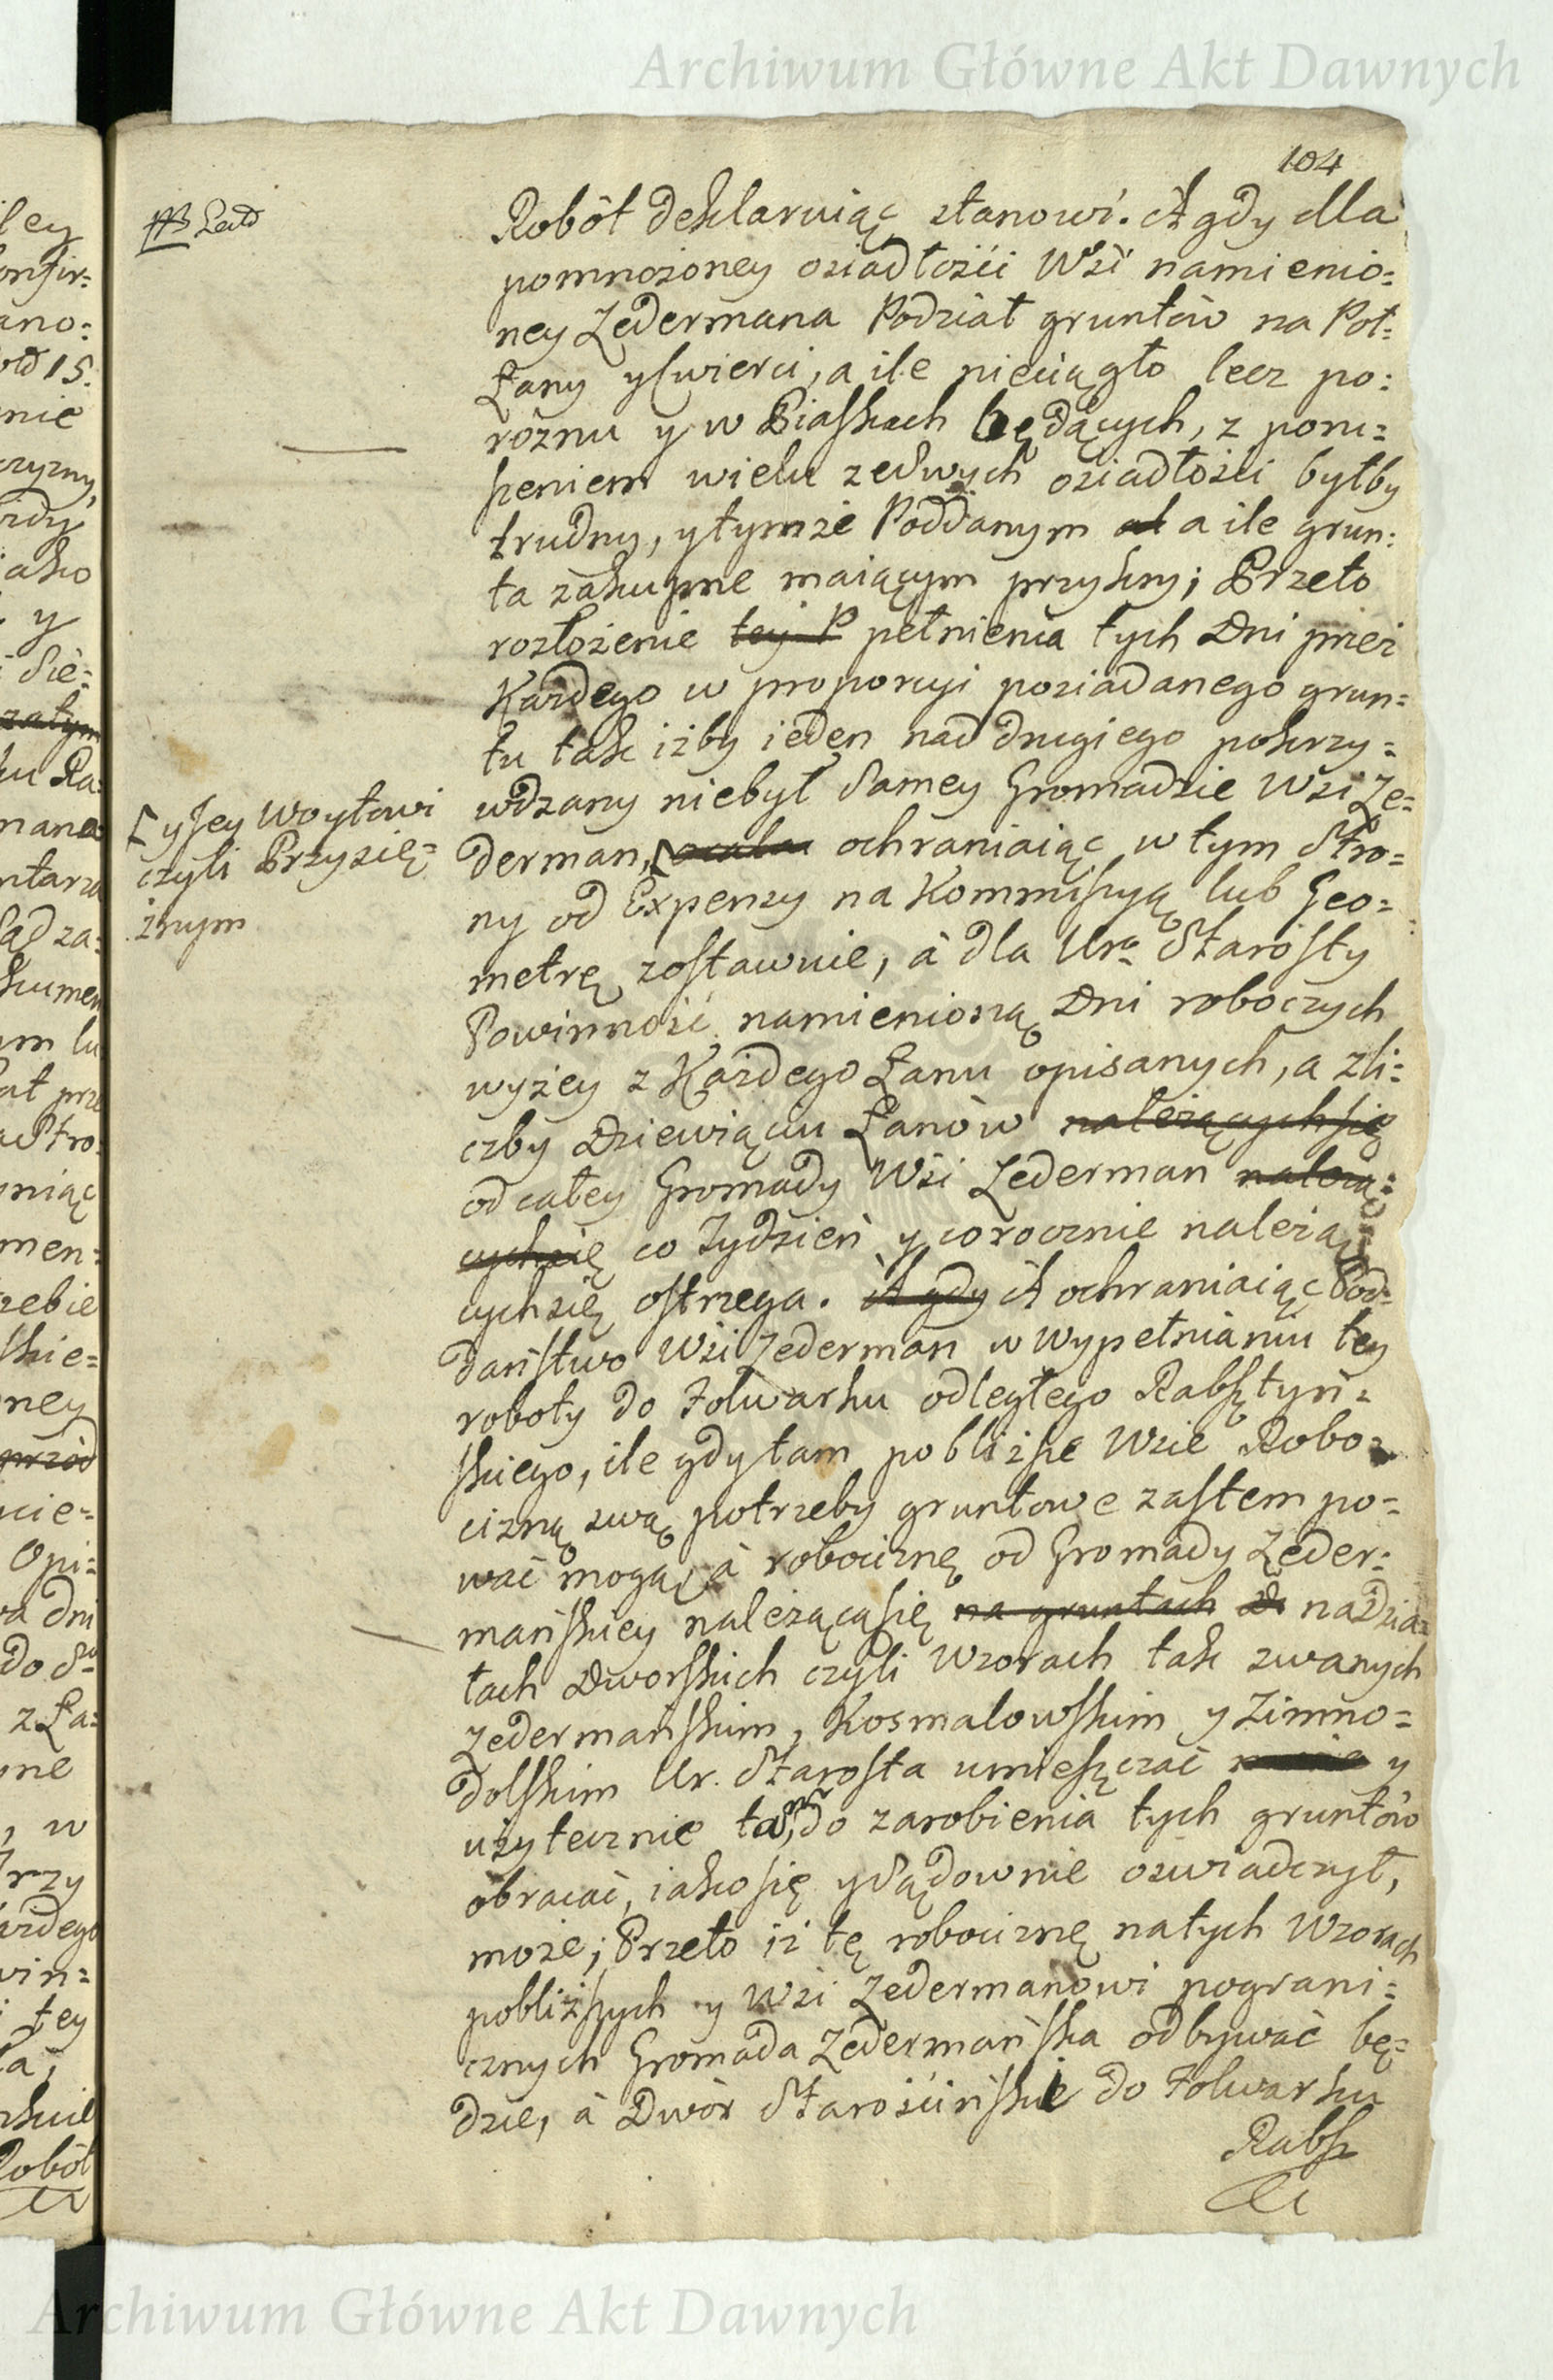 Archiwum Główne Akt Dawnych
104
Robót deklaruiąc stanowi. A gdy dla
pomnożoney osiadłości Wsi namienio=
ney Zedermana Podział gruntów na Poł=
Łany y Cwierci, a ile nieciągło lecz po=
róznu y w Piaskach będących, z poru=
szeniem wielu zedwych osiadłości byłby
trudny, y tymże Poddanym a ile grun=
ta zakupne maiącym przykry; Przeto
rozłożenie tey P pełnienia tych Dni przez
Każdego w proporcyi posiadanego grun=
tu tak iżby ieden nad drugiego pokrzy=
wdzany niebył Samey Gromadzie Wsi Ze=
derman, ochraniaiąc w tym Stro=
ny od Expensy na Kommissyą lub Geo=
metrę zostawuie, à dla Urº Starosty
Powinność namienioną Dni roboczych
wyżey z Każdego Łanu opisanych, a zli=
czby Dziewiąciu Łanów należących się
od całey Gromady Wsi Zederman należą=
cych się co Tydzień y corocznie należą
cych się ostrzega. A gdy A ochraniaiąc Pod=
daństwo Wsi Zederman w wypełnianiu tey
roboty do Folwarku odległego Rabsztyń=
skiego, ile gdy tam pobliższe Wsie Robo=
cizną swą potrzeby gruntowe zastempo=
wać mogą, à robociznę od Gromady Zeder=
mańskiey należącą się na gruntach D na Dzia=
łach Dworskich czyli Wzorach tak zwanych
Zedermańskim, Kosmalowskim y Zimno=
dolskim Ur. Starosta umieszczać y
użytecznie do zarobienia tych gruntów
obracać, iako się y Sądownie oświadczył,
może; Przeto iż tę robociznę na tych Wzorach
pobliższych y Wsi Zedermanowi pograni=
cznych Gromada Zedermańska odbywać bę=
dzie, à Dwór Starościński do Folwarku
Rabsz
[ y Jey Woytowi
czyli Przysię=
żnym
Archiwum Główne Akt Dawnych